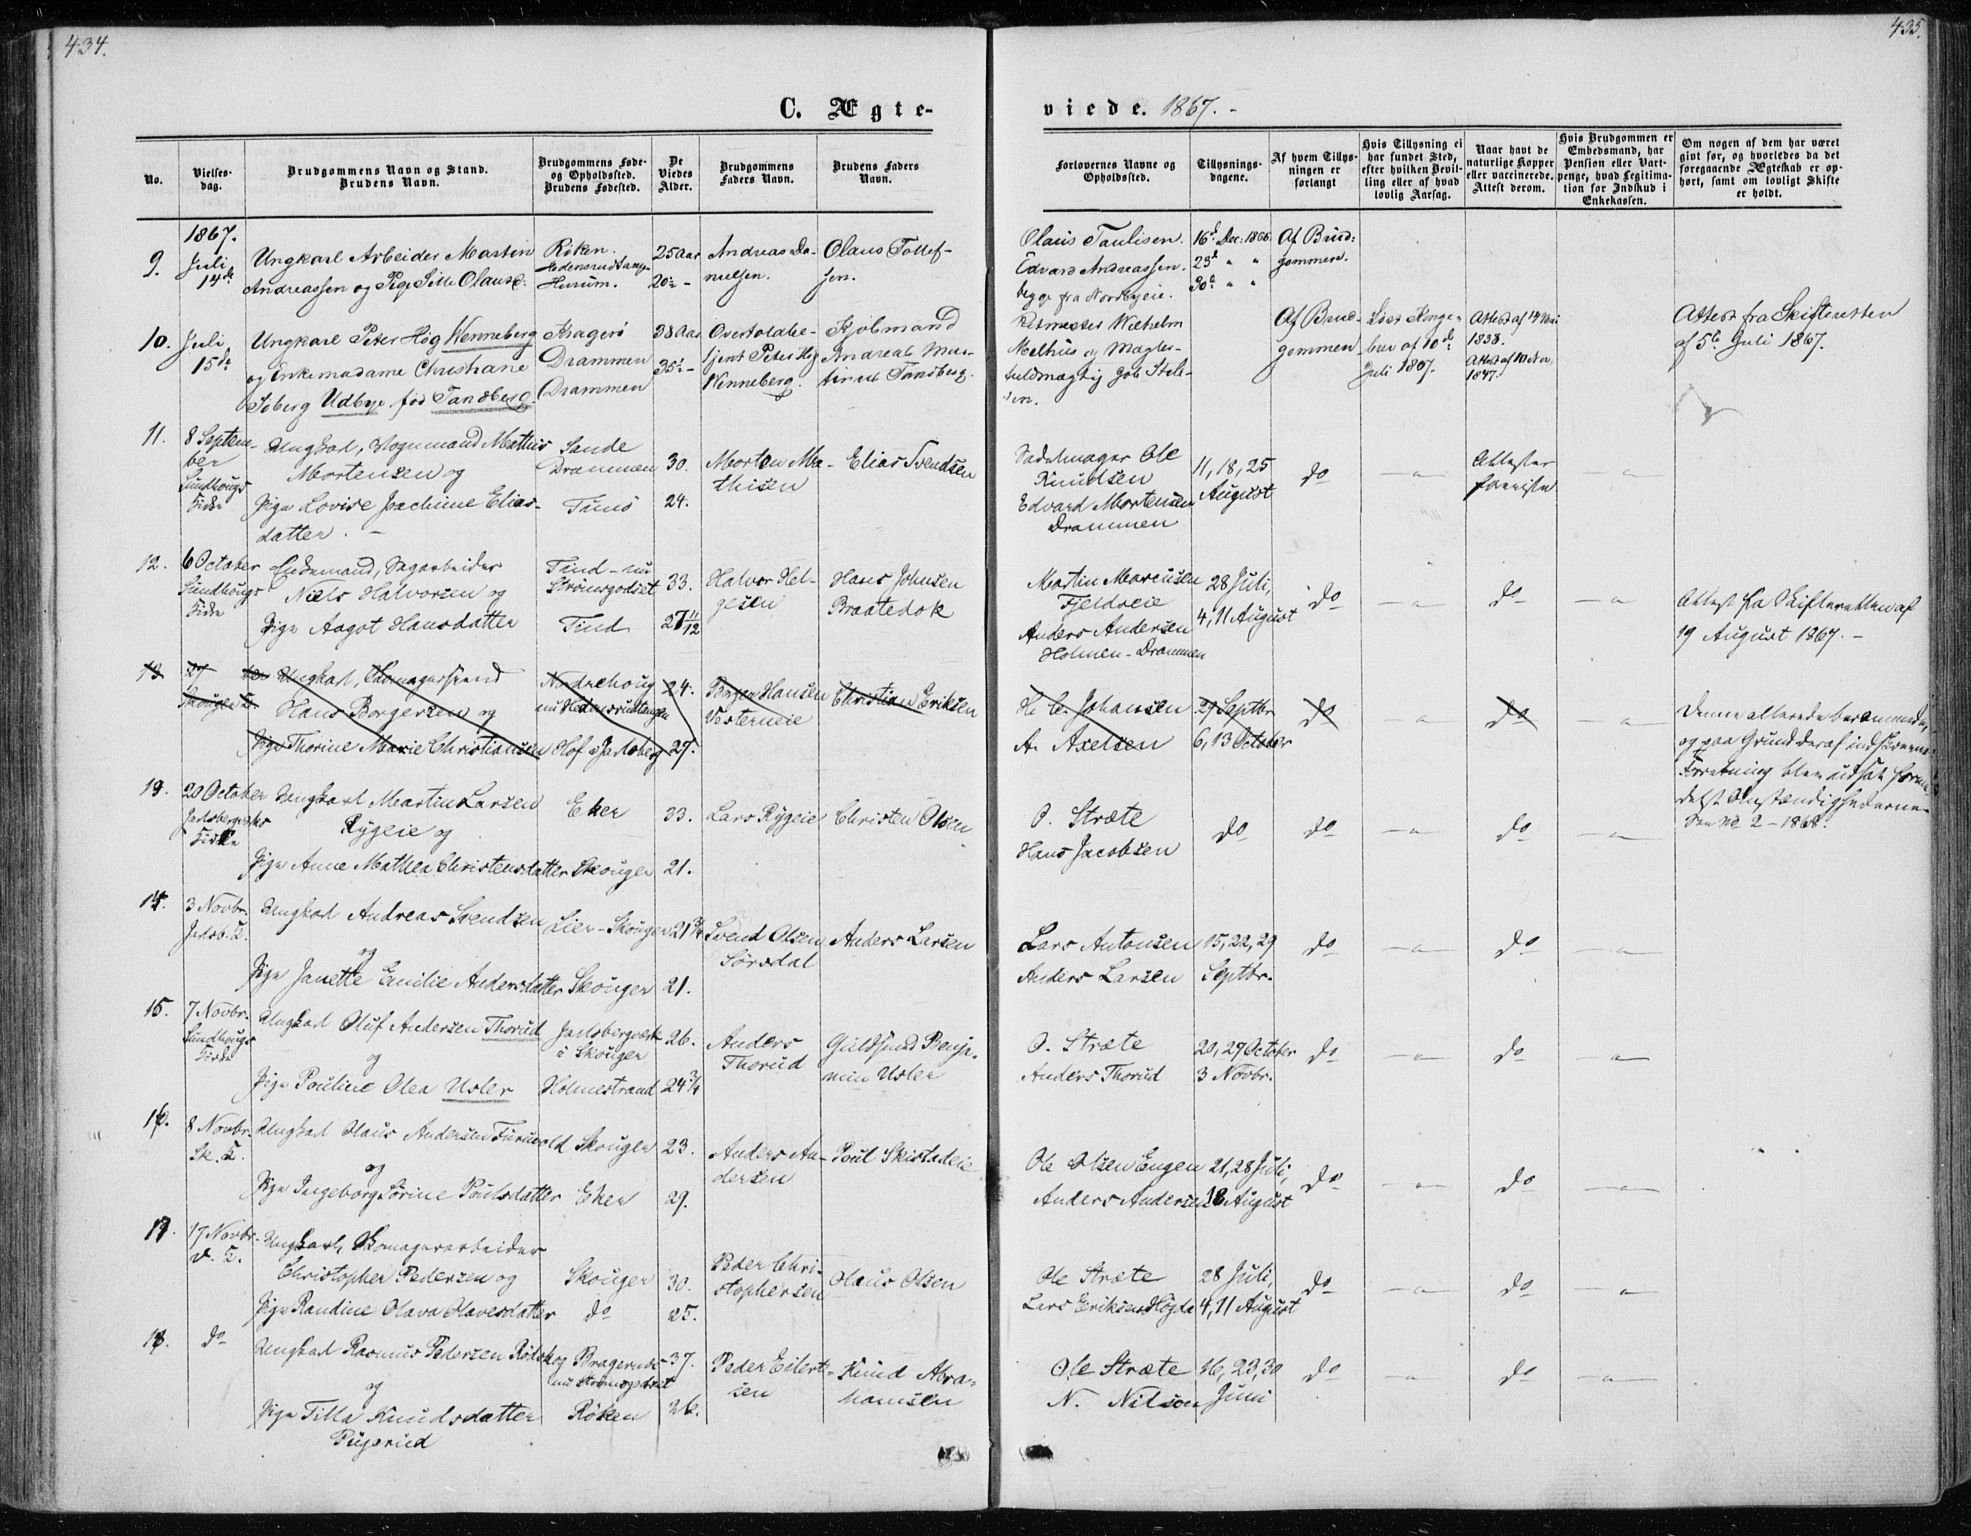 434.
435.
C. Ægte-
viede. 1867.
No.
Vielses-
dag.
Brudgommens Navn og Stand.
Brudens Navn.
Brudgommens Føde-
og Opholdssted.
Brudens Fødested.
De
Viedes
Alder.
Brudgommens
Faders Navn.
Brudens Faders
Navn.
Forlovernes Navne og
Opholdssted.
Tillysnings-
dagene.
Af hvem Tillys-
ningen er
forlangt
Hvis Tillysning ei
har fundet Sted,
efter hvilken Bevil-
ling eller af hvad
lovlig Aarsag.
Naar havt de
naturlige Kopper
eller vaccinerede.
Attest derom.
Hvis Brudgommen er
Embedsmand, har
Pension eller Vart-
penge, hvad Legitima-
tion for Indskud i
Enkekassen.
Om nogen af dem har været
gift før, og hvorledes da det
foregaaende Ægteskab er op-
hørt, samt om lovligt Skifte
er holdt.
1867.
9.
Juli
14de
Ungkarl Arbeider Martin
Andreassen og Pige Olausd.
Røken.
Hurum.
25 Aar
20½ -
Andreas Da-
nielsen.
Olaus Tollef-
sen.
Olaus Paulisen.
Edvard Andreassen.
begge fra Nordbyeie.
16d Dec: 1866
23d " "
30d " "
Af Brud-
gommen.
10.
Juli
15de
Ungkarl Peter Høg Wenneberg
og Enkemadame Christiane
Søberg Udbye, fød Tandberg.
Kragerø
Drammen
Drammen
38 Aar
35½ -
Overtoldbe-
tjent Peter Høg
Wenneberg.
Kjøbmand
Andreas Mar-
tinus Tandberg.
Ritmester Wilhelm
Melhus og Magler-
fuldmægtig Job Stil-
sen.
Af Brud-
gommen
Løst Konge-
brev af 10de
Juli 1867.
Attest af 14 Mai
1838.
Attest af 10 Nov.
1847.
Attest fra Skifteretten
af 5te Juli 1867.
11.
8 Septem-
ber
Sundhougs
Kirke
Ungkarl, Vognmand Mathis
Mortensen og
Pige Lovise Joachime Elias-
datter. -
Sande
Drammen
30.
24.
Morten Ma-
thisen
Elias Svendsen
Sadelmager Ole
Knudsen
Edvard Mortensen
Drammen
11, 18, 25
August
do
- " -
Attester
foreviste
- " -
12.
6 October
Sundhougs
Kirke
Enkemand, Sagarbeider
Niels Halvorsen og
Pige Aagot Hansdatter
Tind - nu
Strømsgodset
Tind
33.
27 11/12
Halvor Hel-
gesen
Hans Johnsen
Braatedok
Martin Marcusen
Fjeldveie
Anders Andersen
Holmen - Drammen
28 Juli,
4, 11 August
do
- " -
do
- " -
Attest fra Skifteretten af
19 August 1867. -
13
27
Skouger K.
Ungkarl, Skomagersvend
Hans Borgersen og
Pige Thorine Marie Christiansen
Norderhoug
nu Hedensrudtangen
Hof i Jarlsberg
24.
27.
Borger Hansen
Vesterneie
Christian Eriksen
H. C. Johansen
A. Axelsen
29 Septbr
6, 13 October
do
- " -
do
- " -
Denne allerede berammede,
og paa Grund deraf indskrevne
Forretning blev udsat forme-
delst Omstændighederne.
See No 2 - 1868.
13.
20 October
Jarlsbergværks
Kirke
Ungkarl Martin Larsen
Rygeie og
Pige Anne Mathea Christensdatter
Eker
Skouger
33.
21.
Lars Rygeie
Christen Olsen
O. Stræte
Hans Jacobsen
do
do
- " -
do
- " -
14.
3 Novbr.
Jarlsb. K.
Ungkarl Andreas Svendsen
og
Pige Janette Emilie Andersdatter
Lier - Skouger
Skouger
21 3/4
21.
Svend Olsen
Sørsdal
Anders Larsen
Lars Antonsen
Anders Larsen
15, 22, 29
Septbr.
do
- " -
do
- " -
15.
7 Novbr.
Sundhougs
Kirke
Ungkarl Oluf Andersen Thorud
og
Pige Pouline Olea Usler
Jarlsbergværk
i Skouger
Holmestrand
26.
24 3/4
Anders
Thorud
Guldsmed Benja-
min Usler
O. Stræte
Anders Thorud
20, 27 October
3 Novbr.
do
- " -
do
- " -
16.
8 Novbr.
Sk. K.
Ungkarl Olaus Andersen
og
Pige Ingeborg Sørine Poulsdatter
Skouger
Eker
23.
29.
Anders An-
dersen
Poul Skistadeie
Ole Olsen Engen
Anders Andersen
21, 28 Juli,
18 August
do
- " -
do
- " -
17.
17 Novbr.
d. K.
Ungkarl, Skomagerarbeider
Christopher Pedersen og
Pige Randine Olava Olavesdatter
Skouger
do
30.
25.
Peder Chri-
stophersen
Olaus Olsen
Ole Stræte
Lars Eriksen Høgda
28 Juli,
4, 11 August
do
- " -
do
- " -
18.
do
Ungkarl Rasmus Pedersen Rødskog
og
Pige Tilla Knudsdatter
Pugerud
Bragernæs
nu Strømsgodset
Røken
37.
26.
Peder Eilert-
sen
Knud Abra-
hamsen
Ole Stræte
N. Nilson
16, 23, 30
Juni
do
- " -
do
- " -